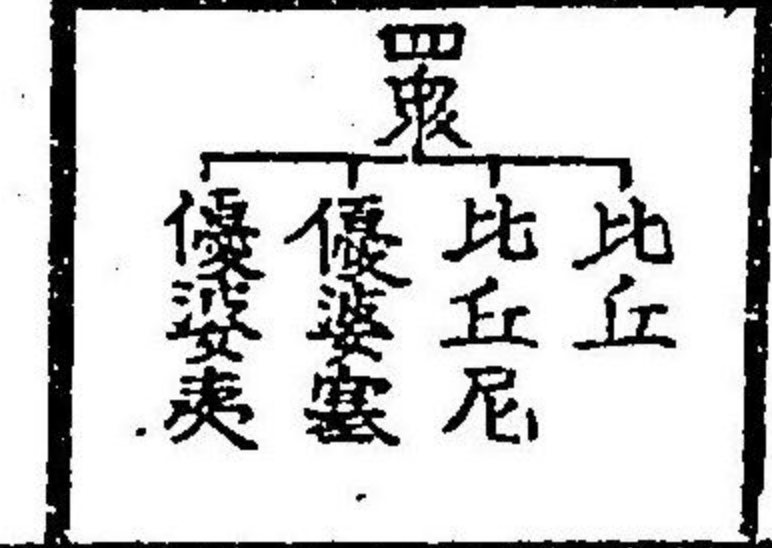 四衆
比丘
比丘尼
優婆塞
優婆夷